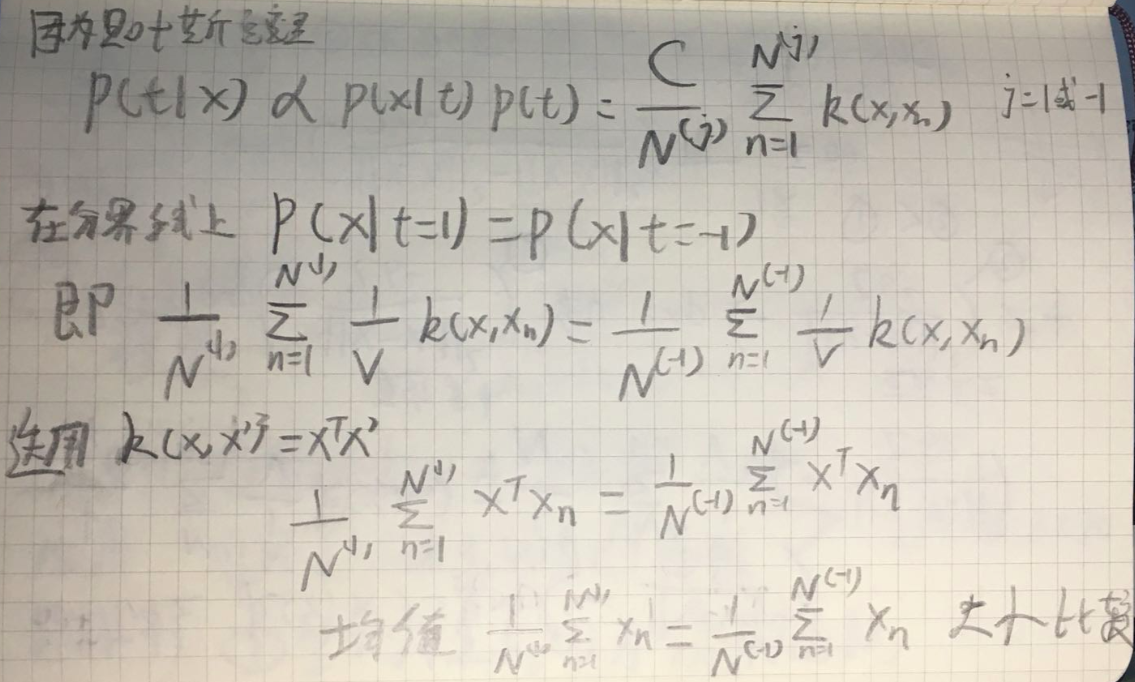 因为贝叶斯定理
p(t|x) ∝ p(x|t) p(t) = \frac{C}{N^{(j)}} \sum_{n=1}^{N^{(j)}} k(x,x_n) j=1或-1
在分界线上 P(x|t=1) = p(x|t=-1)
即 \frac{1}{N^{(1)}} \sum_{n=1}^{N^{(1)}} \frac{1}{V} k(x,x_n) = \frac{1}{N^{(-1)}} \sum_{n=1}^{N^{(-1)}} \frac{1}{V} k(x,x_n)
选用 k(x,x') = x^T x'
\frac{1}{N^{(1)}} \sum_{n=1}^{N^{(1)}} x^T x_n = \frac{1}{N^{(-1)}} \sum_{n=1}^{N^{(-1)}} x^T x_n
均值 \frac{1}{N^{(1)}} \sum_{n=1}^{N^{(1)}} x_n = \frac{1}{N^{(-1)}} \sum_{n=1}^{N^{(-1)}} x_n 大小比较